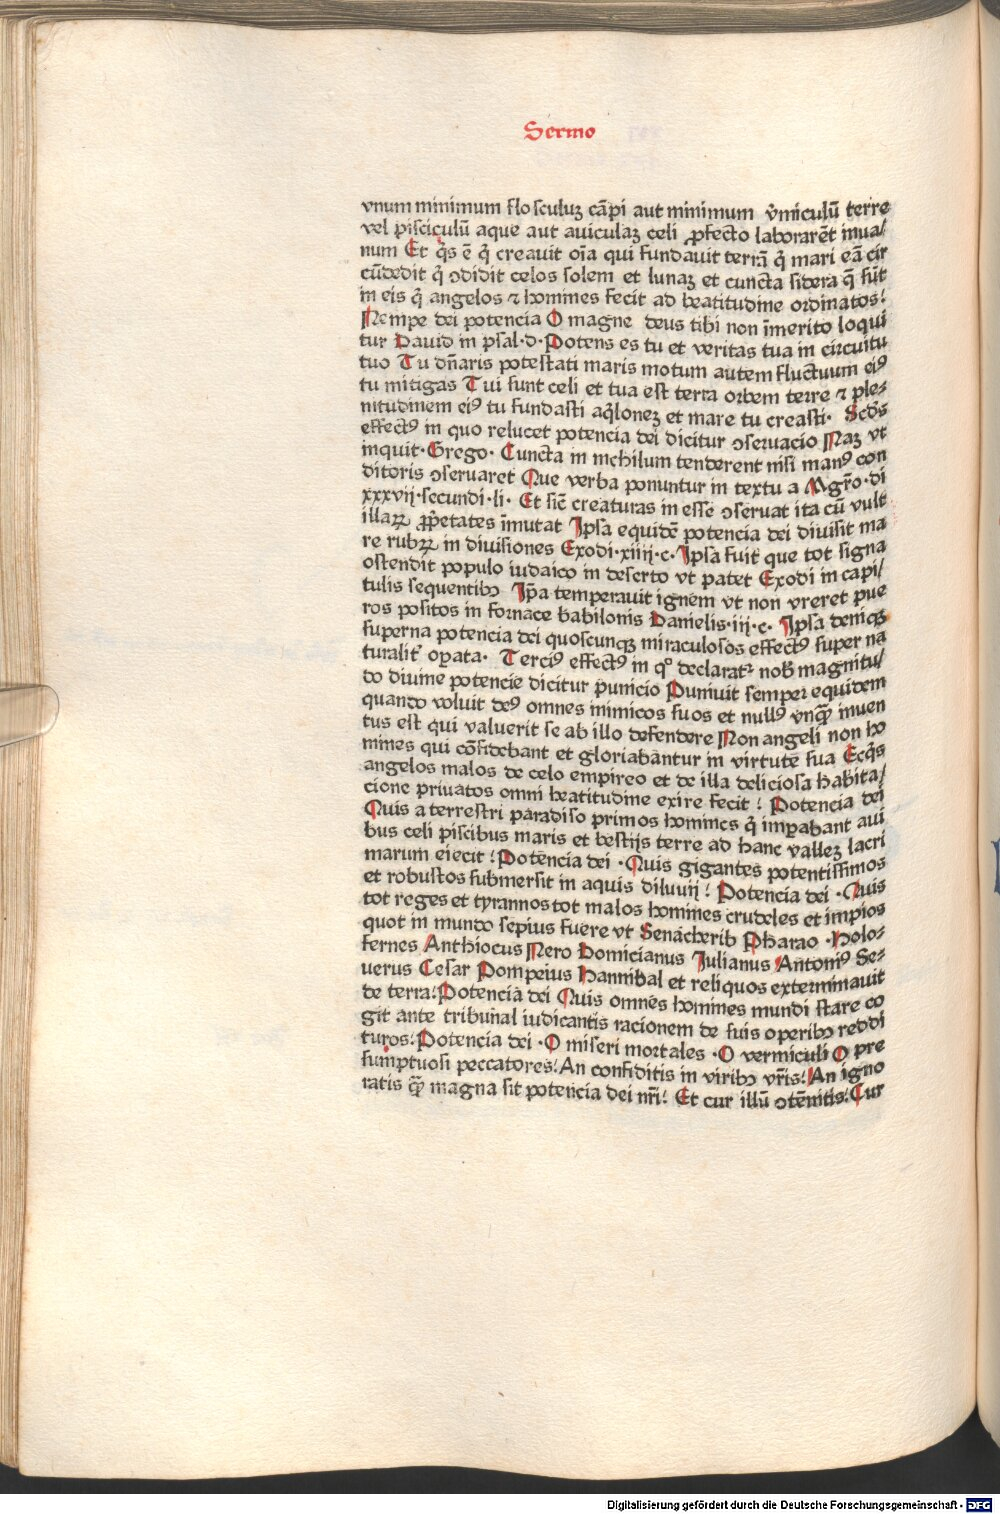 Sermo
vnum minimum flosculuꝫ cãpi aut minimum v̓miculũ terre
vel pisciculũ aque aut auiculaꝫ celi ꝓfecto laborarẽt inua/
num Et q̓s ẽ q̓ creauit oĩa qui fundauit terrã q̓ mari eã cir
cũdedit q̓ ꝯdidit celos solem et lunaꝫ et cuncta sidera q̃ sũt
in eis q̓ angelos ⁊ homines fecit ad beatitudinẽ ordinatos!
Nempe dei potencia O magne deus tibi non ĩmerito loqui
tur Dauid in psal·d·Potens es tu et veritas tua in circuitu
tuo Tu dñaris potestati maris motum autem fluctuum eiꝰ
tu mitigas Tui sunt celi et tua est terra orbem terre ⁊ ple⸗
nitudinem eiꝰ tu fundasti aq̓loneꝫ et mare tu creasti· Scd̓s
effectꝰ in quo relucet potencia dei dicitur ꝯseruacio Naꝫ vt
inquit·Grego· Cuncta in nichilum tenderent nisi manꝰ con
ditoris ꝯseruaret Que verba ponuntur in textu a Mgr̃o·di
xxxvij·secundi·li· Et sic̃ creaturas in esse ꝯseruat ita cũ vult
illaꝝ ꝓp̓etates ĩmutat Ipsa equidẽ potencia dei diuisit ma
re rubꝝ in diuisiones Exodi·xiiij·c·Ipsa fuit que tot signa
ostendit populo iudaico in deserto vt patet Exodi in capi/
tulis sequentibꝫ Ip̃a temperauit ignem vt non vreret pue
ros positos in fornace babilonis Danielis·iij·c· Ipsa deniqꝫ
superna potencia dei quoscunqꝫ miraculosos effectꝰ super na
turalit̓ oꝑata· Terciꝰ effectꝰ in qͦ declaratᷣ nob̓ magnitu/
do diuine potencie dicitur p̓unicio Puniuit semper equidem
quando voluit deꝰ omnes inimicos suos et nullꝰ vnqꝫ̃ inuen
tus est qui valuerit se ab illo defendere Non angeli non ho
mines qui cõfidebant et gloriabantur in virtute sua Ecq̓s
angelos malos de celo empireo et de illa deliciosa habita/
cione priuatos omni beatitudine exire fecit! Potencia dei
Quis a terrestri paradiso primos homines q̓ imꝑabant aui
bus celi piscibus maris et bestijs terre ad hanc valleꝫ lacri
marum eiecit!Potencia dei·Quis gigantes potentissimos
et robustos submersit in aquis diluuij! Potencia dei·Quis
tot reges et tyrannos tot malos homines crudeles et impios
quot in mundo sepius fuere vt Senacherib Pharao·Holo⸗
fernes Anthiocus Nero Domicianus Iulianus Antoniꝰ Se⸗
uerus Cesar Pompeius Hannibal et reliquos exterminauit
de terra!Potencia dei Quis omnes homines mundi stare co
git ante tribunal iudicantis racionem de suis operibꝫ reddi
turos!Potencia dei·O miseri mortales·O vermiculi O pre
sumptuosi peccatores!An confiditis in viribꝫ vr̃is!An igno
ratis qꝫ̃ magna sit potencia dei nr̃i! Et cur illũ ꝯtẽnitis!Cur
Digitalisierung gefördert durch die Deutsche Forschungsgemeinschaft - DFG